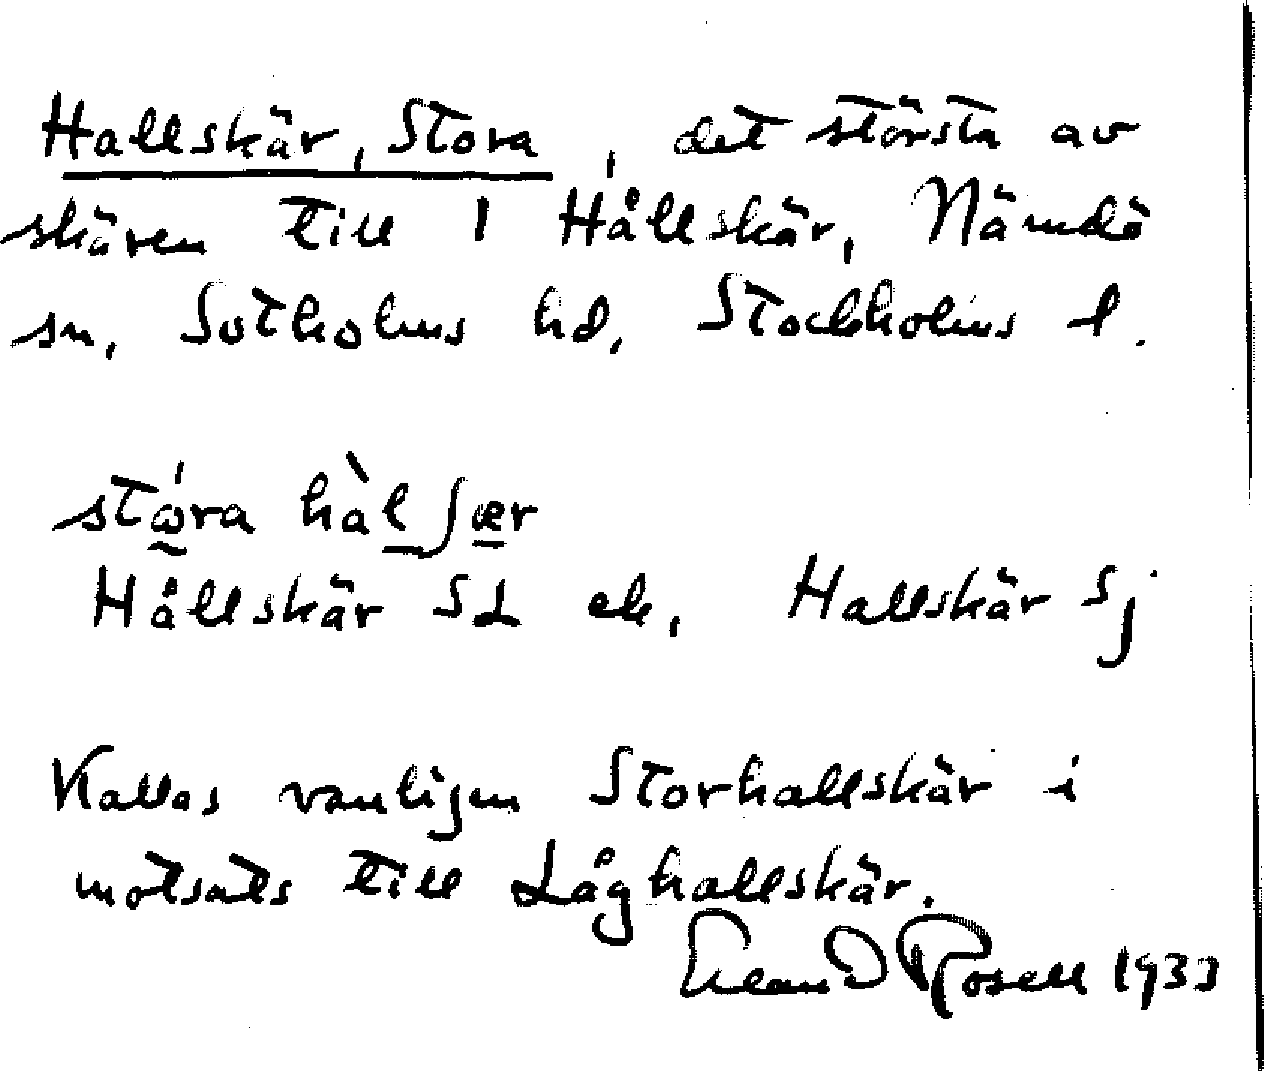 Hallskär, Stora, det största av
skären till 1 Hållskär, Nämdö
sn, Sotholms hd, Stockholms l.
stώra hàlʃær
Hållskär SL ek, Hallskär Sj
Kallas vanligen Storhallskär i
motsats till Låghallskär.
Rosell 1933